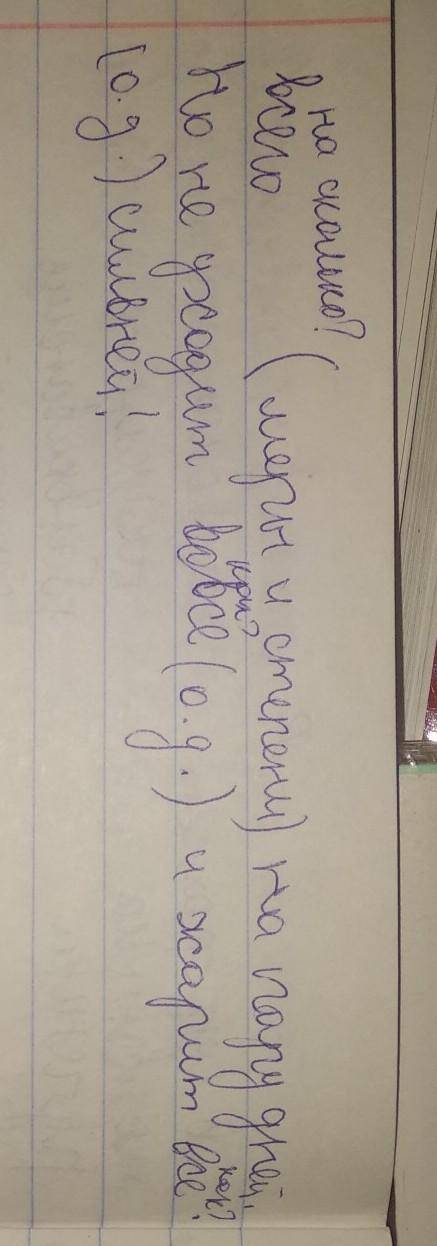 на сколько?
всего (меры и степени) на пару дней,
как? как?
Но не уходит вовсе (о.д.) и жарит все
(о.д.) сильней!